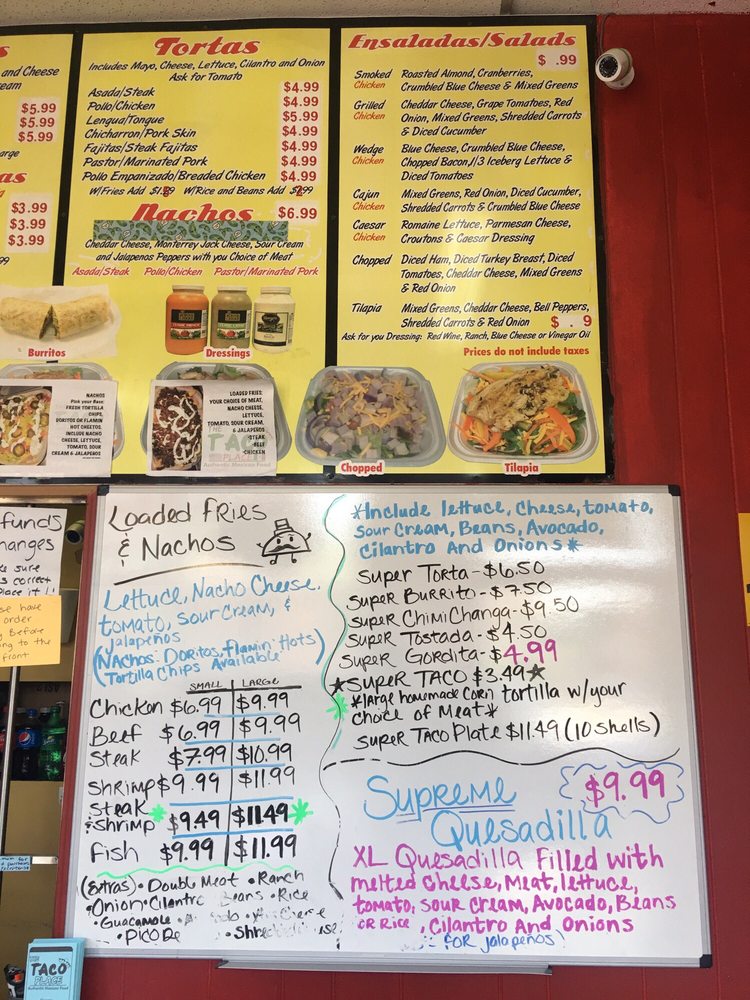 s
and Cheese
eam
$5.99
$5.99
$5.99
arge
as
$3.99
$3.99
$3.99
99
Burritos
Tortas
Includes Mayo, Cheese, Lettuce, Cilantro and Onion
Ask for Tomato
Asada/Steak $4.99
Pollo/Chicken $4.99
Lengua/Tongue $5.99
Chicharron/Pork Skin $4.99
Fajitas/Steak Fajitas $4.99
Pastor/Marinated Pork $4.99
Pollo Empanizado/Breaded Chicken $4.99
W/Fries Add W/Rice and Beans Add
Nachos $6.99
Cheddar Cheese, Monterrey Jack Cheese, Sour Cream
and Jalapenos Peppers with you Choice of Meat
Asada/Steak Pollo/Chicken Pastor/Marinated Pork
Dressings
NACHOS
Pick your Base:
FRESH TORTILLA
CHIPS,
DORITOS OR FLAMIN
HOT CHEETOS.
INCLUDE NACHO
CHEESE, LETTUCE,
TOMATO, SOUR
CREAM & JALAPENOS
LOADED FRIES.
YOUR CHOICE OF MEAT,
NACHO CHEESE,
LETTUCE,
TOMATO, SOUR CREAM,
& JALAPENOS
-STEAK
-BEEF
-CHICKEN
THE
TACO
PLACE
Authentic Mexican Food
Ensaladas/Salads
$ .99
Smoked Roasted Almond, Cranberries,
Chicken Crumbled Blue Cheese & Mixed Greens
Grilled Cheddar Cheese, Grape Tomatoes, Red
Chicken Onion, Mixed Greens, Shredded Carrots
& Diced Cucumber
Wedge Blue Cheese, Crumbled Blue Cheese,
Chicken Chopped Bacon,1/3 Iceberg Lettuce &
Diced Tomatoes
Cajun Mixed Greens, Red Onion, Diced Cucumber,
Chicken Shredded Carrots & Crumbled Blue Cheese
Caesar Romaine Lettuce, Parmesan Cheese,
Chicken Croutons & Caesar Dressing
Chopped Diced Ham, Diced Turkey Breast, Diced
Tomatoes, Cheddar Cheese, Mixed Greens
& Red Onion
Tilapia Mixed Greens, Cheddar Cheese, Bell Peppers,
Shredded Carrots & Red Onion $ . 9
Ask for you Dressing: Red Wine, Ranch, Blue Cheese or Vinegar Oil
Prices do not include taxes
Chopped
Tilapia
funds
hanges
ke sure
s correct
place it !!
se have
order
y Before
ng to the
front
Loaded Fries
& Nachos
Lettuce, Nacho Cheese,
tomato, sour cream, &
jalapeños
(Nachos: Doritos, Flamin' Hots)
Tortilla Chips Available
SMALL LARGE
Chicken $6.99 $9.99
Beef $6.99 $9.99
Steak $7.99 $10.99
Shrimp $9.99 $11.99
Steak
& Shrimp $9.49 $11.49
Fish $9.99 $11.99
(Extras) • Double Meat • Ranch
•Onion•Cilantro Beans •Rice
•Guacamole
•Pico De
*Include lettuce, Cheese, tomato,
Sour Cream, Beans, Avocado,
Cilantro And Onions*
Super Torta - $6.50
Super Burrito - $7.50
Super ChimiChanga - $9.50
Super Tostada - $4.50
Super Gordita - $4.99
★Super TACO $3.49★
*large homemade corn tortilla w/your
choice of Meat*
Super Taco Plate $11.49 (10 shells)
Supreme $9.99
Quesadilla
XL Quesadilla Filled with
melted cheese, Meat, lettuce,
tomato, sour cream, Avocado, Beans
or Rice, Cilantro And Onions
for jalapeños
THE
TACO
PLACE
Authentic Mexican Food